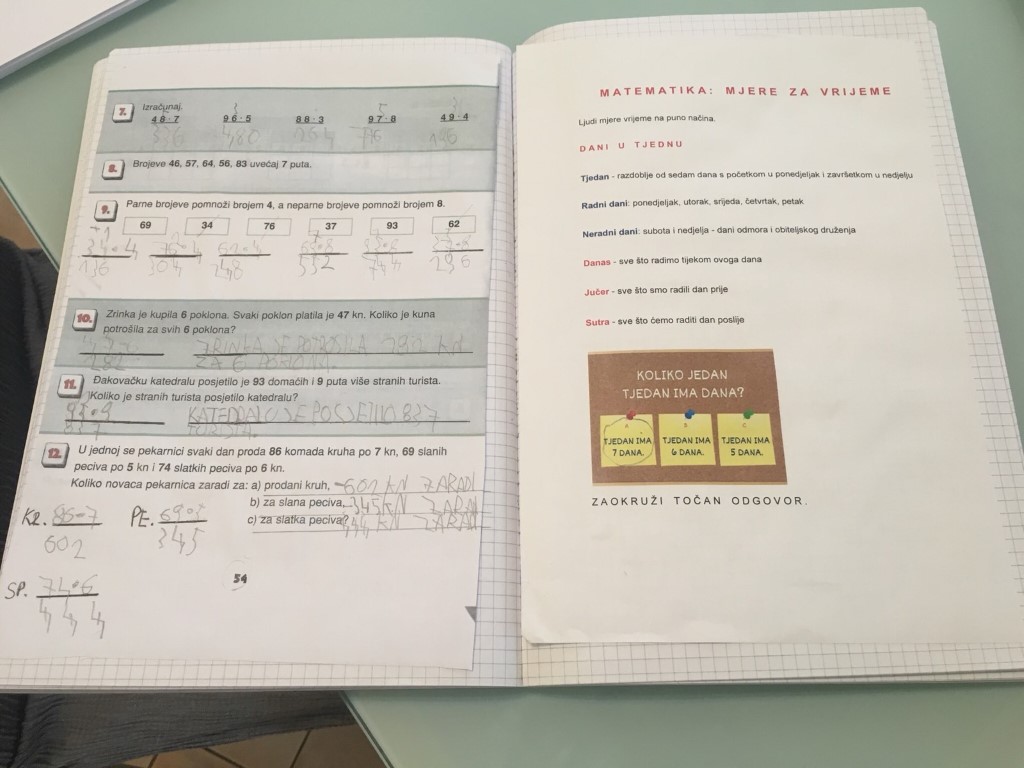 7. Izračunaj.
48 · 7 96 · 5 88 · 3 97 · 8 49 · 4
336 480 264 776 196
8. Brojeve 46, 57, 64, 56, 83 uvećaj 7 puta.
9. Parne brojeve pomnoži brojem 4, a neparne brojeve pomnoži brojem 8.
69 34 76 37 93 62
34·4 76·4 62·4
136 304 248 552 744 296
10. Zrinka je kupila 6 poklona. Svaki poklon platila je 47 kn. Koliko je kuna
potrošila za svih 6 poklona?
ZRINKA JE POTROŠILA
ZA 6 POKLONA.
11. Đakovačku katedralu posjetilo je 93 domaćih i 9 puta više stranih turista.
Koliko je stranih turista posjetilo katedralu?
93·9 KATEDRALU JE POSJETILO 837
837 TURISTA.
12. U jednoj se pekarnici svaki dan proda 86 komada kruha po 7 kn, 69 slanih
peciva po 5 kn i 74 slatkih peciva po 6 kn.
Koliko novaca pekarnica zaradi za: a) prodani kruh, KN ZARADI
b) za slana peciva, 345 KN ZARADI
c) za slatka peciva? 444 KN ZARADI
KR. 86·7 PE.
602 345
SP. 74·6
444
54
MATEMATIKA: MJERE ZA VRIJEME
Ljudi mjere vrijeme na puno načina.
DANI U TJEDNU
Tjedan - razdoblje od sedam dana s početkom u ponedjeljak i završetkom u nedjelju
Radni dani: ponedjeljak, utorak, srijeda, četvrtak, petak
Neradni dani: subota i nedjelja - dani odmora i obiteljskog druženja
Danas - sve što radimo tijekom ovoga dana
Jučer - sve što smo radili dan prije
Sutra - sve što ćemo raditi dan poslije
KOLIKO JEDAN
TJEDAN IMA DANA?
A B C
TJEDAN IMA TJEDAN IMA TJEDAN IMA
7 DANA. 6 DANA. 5 DANA.
ZAOKRUŽI TOČAN ODGOVOR.